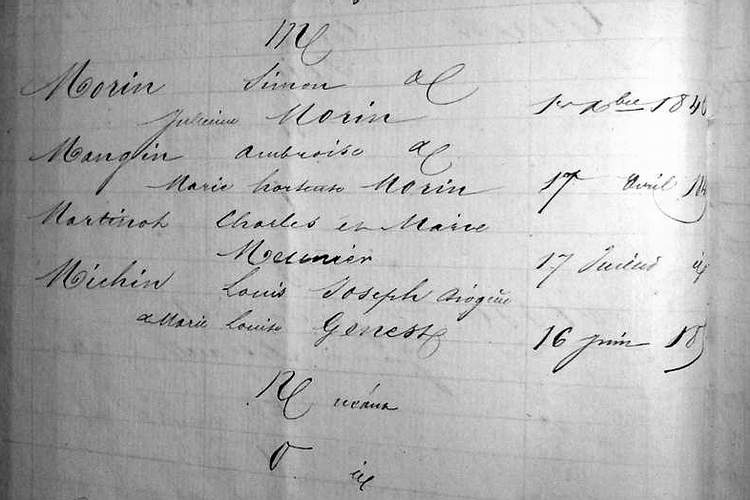 M
Morin Simon &
Julienne Morin 1er Xbre 184
Mangin Ambroise &
Marie hortense Morin 17 Avril 18
Martinot Charles et Marie
Meunier 17
Michin Louis Joseph
& Marie Louise Genest 16 juin 18
N néant
O id